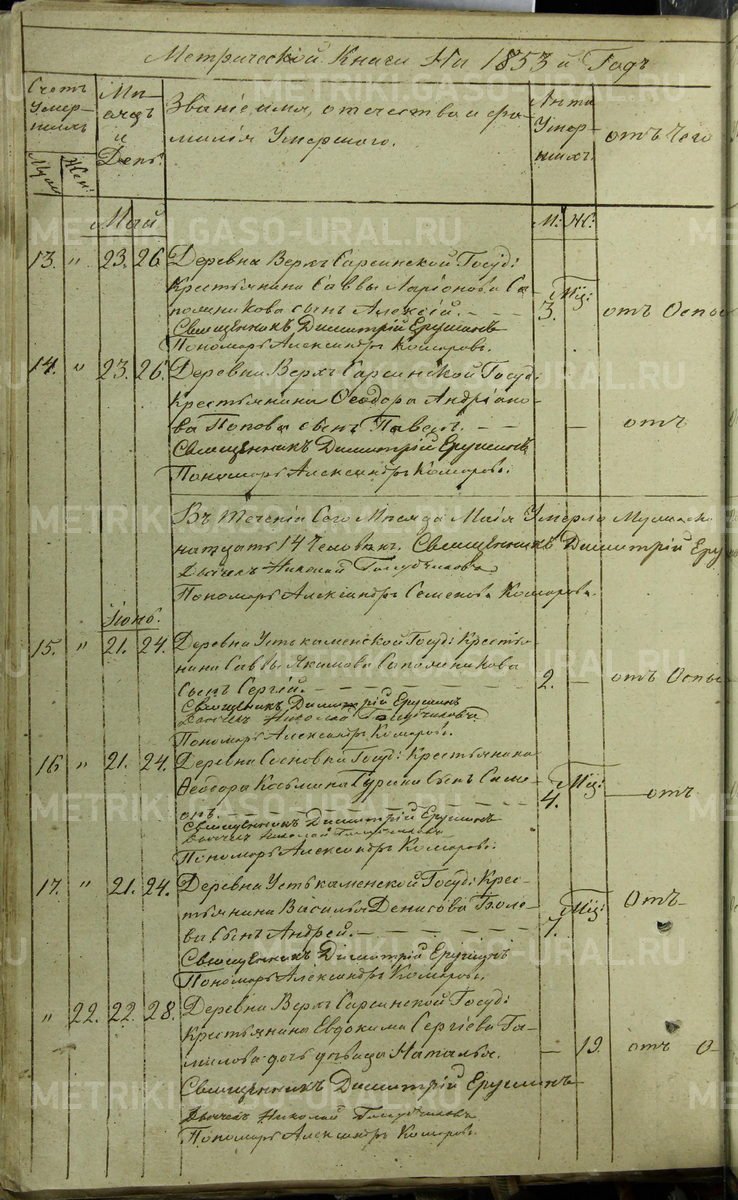 Метрической Книги На 1853й Годъ
Счетъ Умерших
Муж: Жен:
Месяцъ и День.
Званіе, имя, отечество и фамилія Умершаго.
Лѣта Умерших.
отъ чего
Май
М: Ж:
13. " 23. 26. Деревни Верхъ Сарсинской Госуд:
Крестьянина Саввы Ларіонова Са-
пожникова сынъ Алексій. 3. Мц: отъ Оспы
Священникъ Димитрій
Пономарь Александръ Комаровъ.
14. " 23. 26. Деревни Верхъ Сарсинской Госуд:
Крестьянина Ѳеодора Андріано-
ва Попова сынъ Павелъ. — отъ
Священникъ Димитрій
Пономарь Александръ Комаровъ.
Въ теченіи Сего Месяца Маія Умерло
14 Человекъ. Священникъ Димитрій
Дьячекъ Николай Голубчиковъ
Пономарь Александръ Семеновъ Комаровъ.
Іюнь.
15. " 21. 24. Деревни Устькаменской Госуд: Крестья-
нина Саввы Якимова Сапожникова
Сынъ Сергій. 2. — отъ Оспы
Священникъ Димитрій
Дьячекъ Николай Голубчиковъ
Пономарь Александръ Комаровъ.
16 " 21. 24. Деревни Сосновки Госуд: Крестьянина
Ѳеодора Козьмина Гурина Сынъ Симе-
онъ. 4. Мц: — отъ
Священникъ Димитрій
Дьячекъ Николай Голубчиковъ
Пономарь Александръ Комаровъ.
17. " 21. 24. Деревни Устькаменской Госуд: Крес-
тьянина Василья Денисова
Сынъ Андрей. 7. Мц: Отъ
Священникъ Димитрій
Пономарь Александръ Комаровъ.
" 22. 22. 28. Деревни Верхъ Сарсинской Госуд:
Крестьянина Евдокима Сергіева Га-
милова дочь девица Наталья. — 19. отъ О
Священникъ Димитрій
Дьячекъ Николай Голубчиковъ
Пономарь Александръ Комаровъ.
METRIKI.GASO-URAL.RU